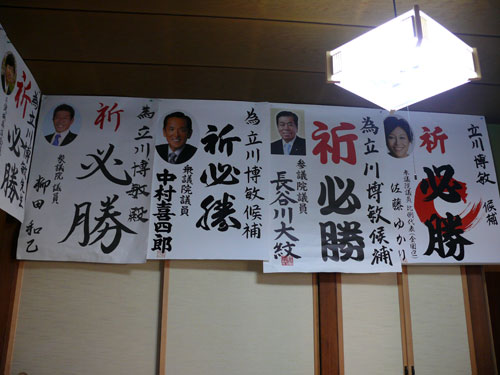 立川博敏 候補
祈
必勝
参議院議員 比例代表(全国区)
佐藤ゆかり
為 立川博敏候補
祈
必勝
参議院議員
長谷川大紋
為 立川博敏候補
祈必勝
衆議院議員
中村喜四郎
為 立川博敏殿
祈
必勝
衆議院議員
柳田 和己
為 立川博敏
祈
必勝